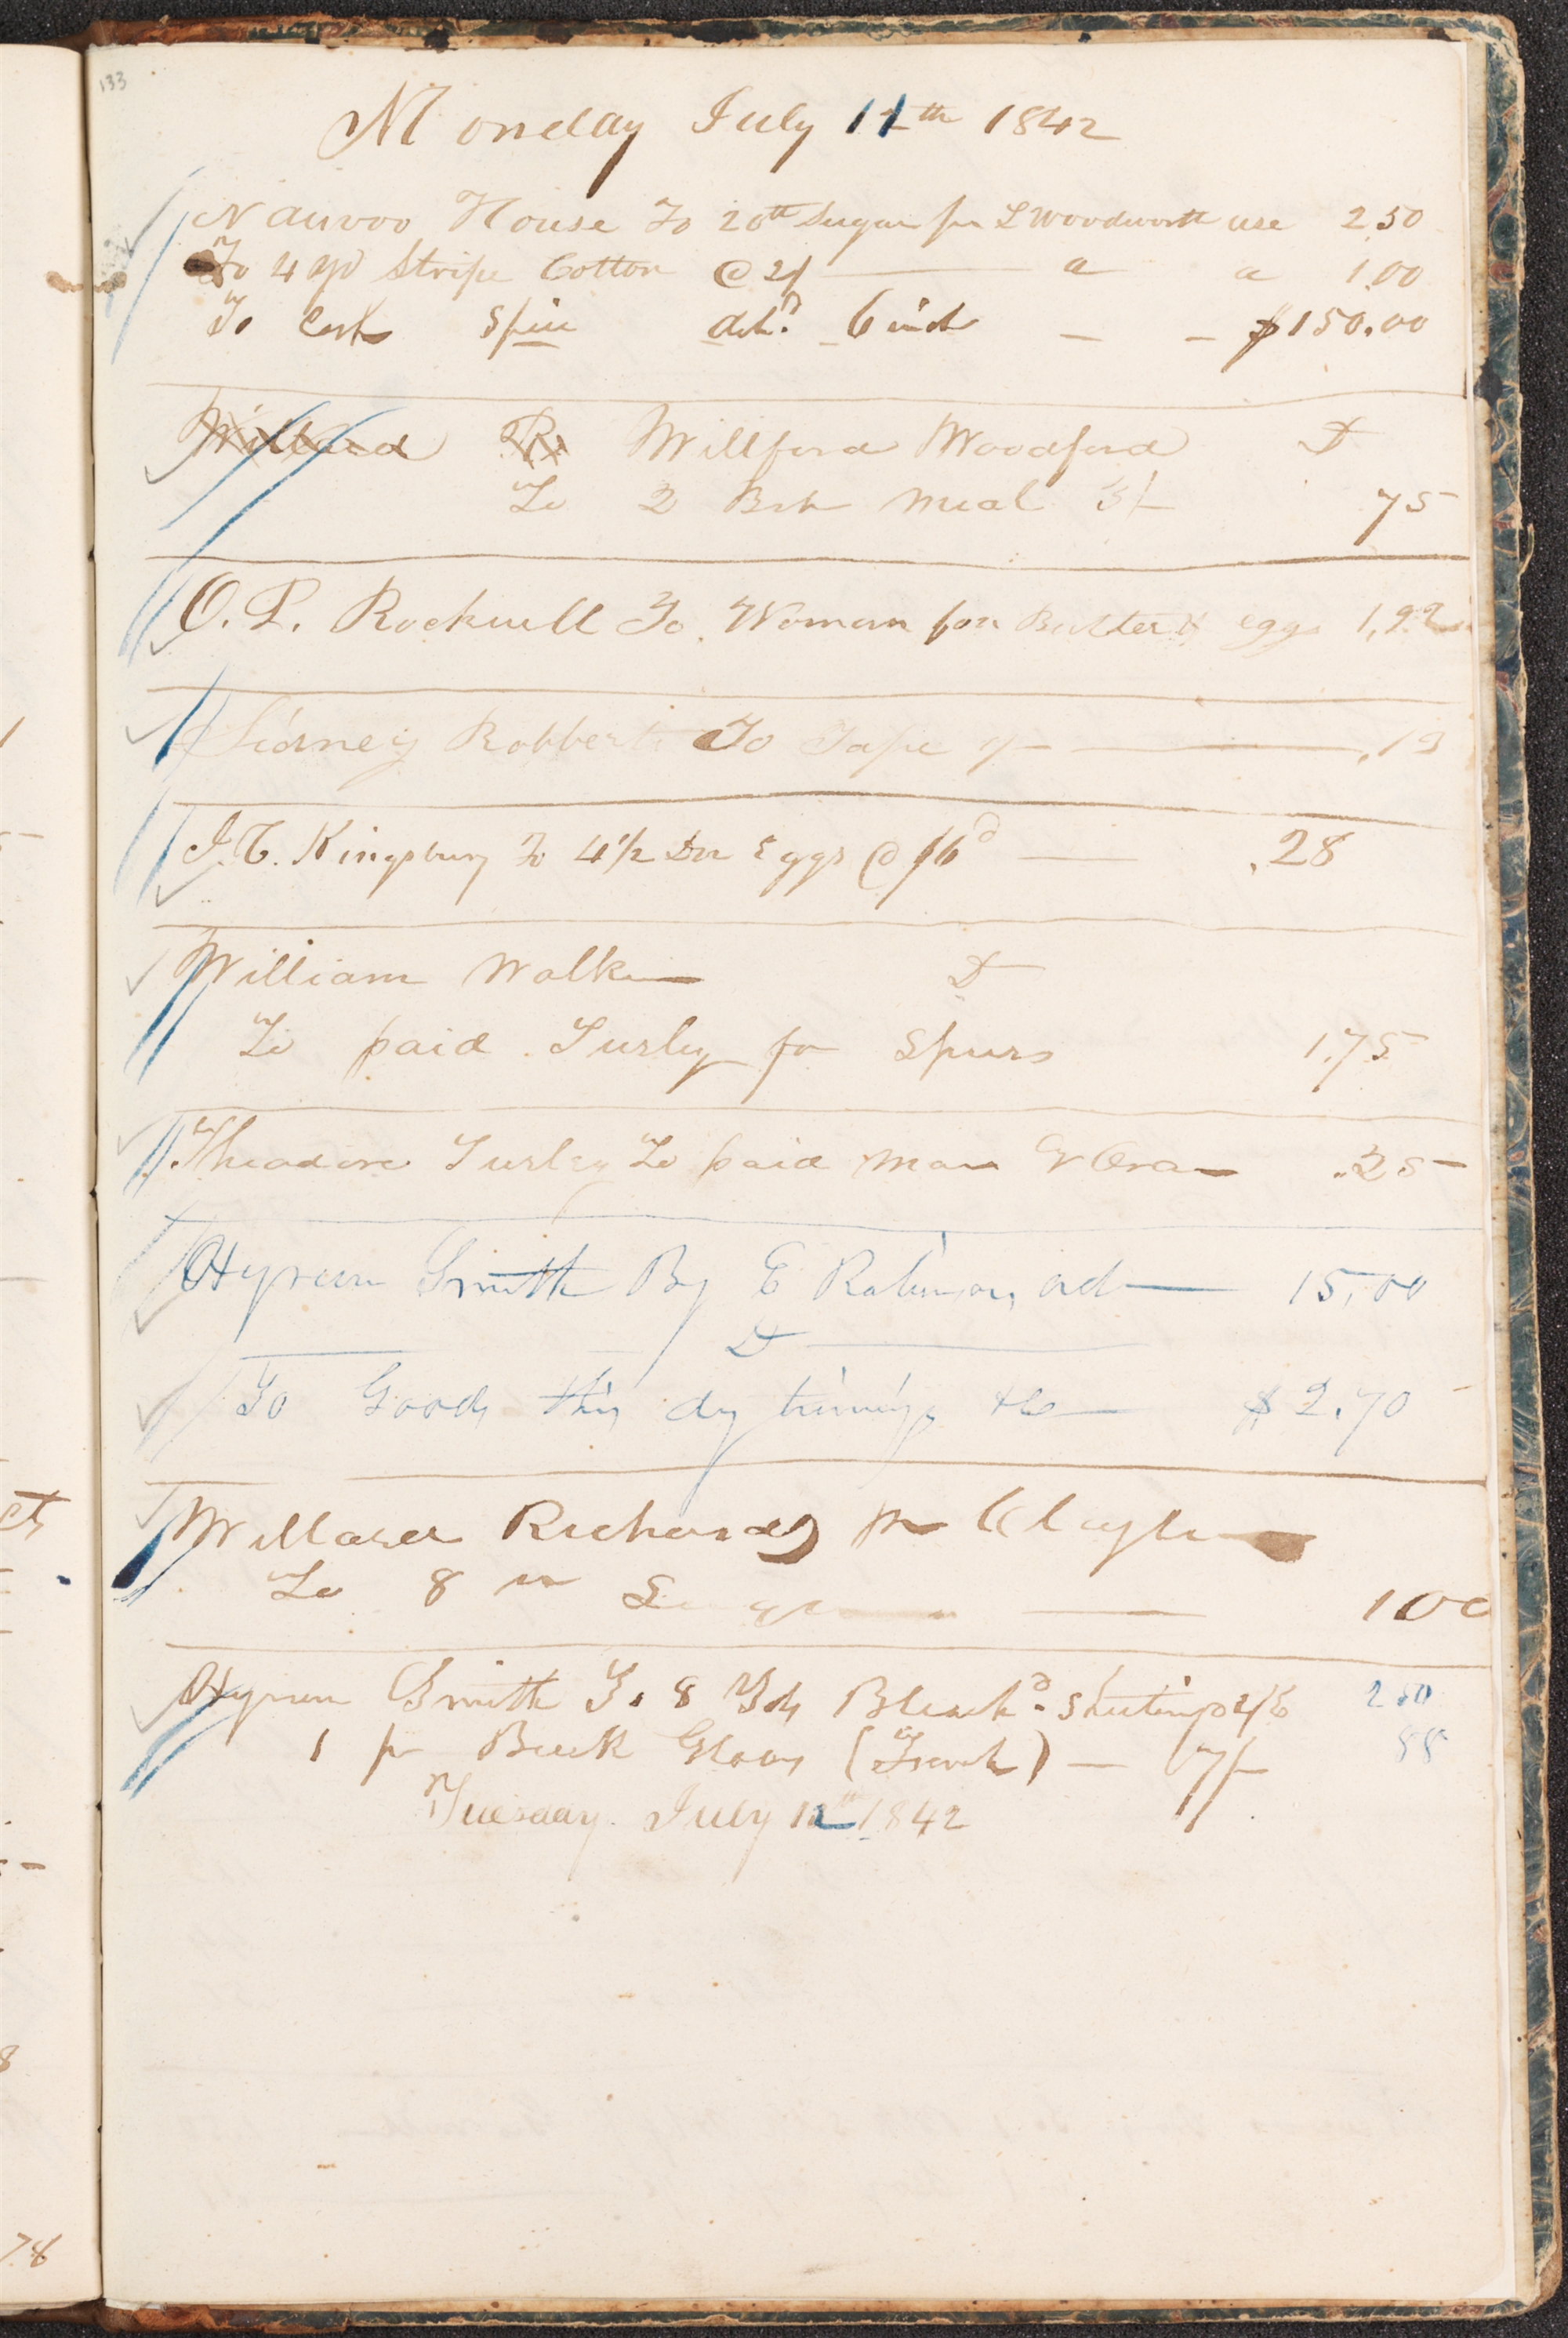 133
Monday July 11th 1842
Nauvoo House To 20 lb Sugar per L Woodworth use 2.50
To 4 yd Stripe Cotton @ 2/ " " 1.00
To Cash $150.00
Willard R. Willford Woodford D
To 2 Bsh Meal 3/- 75
O. P. Rockwell To Woman for Butter & eggs 1,92
Sidney Robberts To Tape ,13
J. C. Kingsbury To 4 1/2 Doz Eggs @ /6d .28
William Walker D
To paid Turley for Spurs 1.75
Theodore Turley To paid man .25
Hyrum Smith By E Robinson, 15,00
D
To Goods this dy $ 2.70
Willard Richards pr Clayton
To 8 lb Sugar 100
Hyrum Smith To 8 Yds Bleachd. Sheeting 2/6 250
1 pr Buck Gloves (French) — 7/- 88
Tuesday. July 12th 1842
78